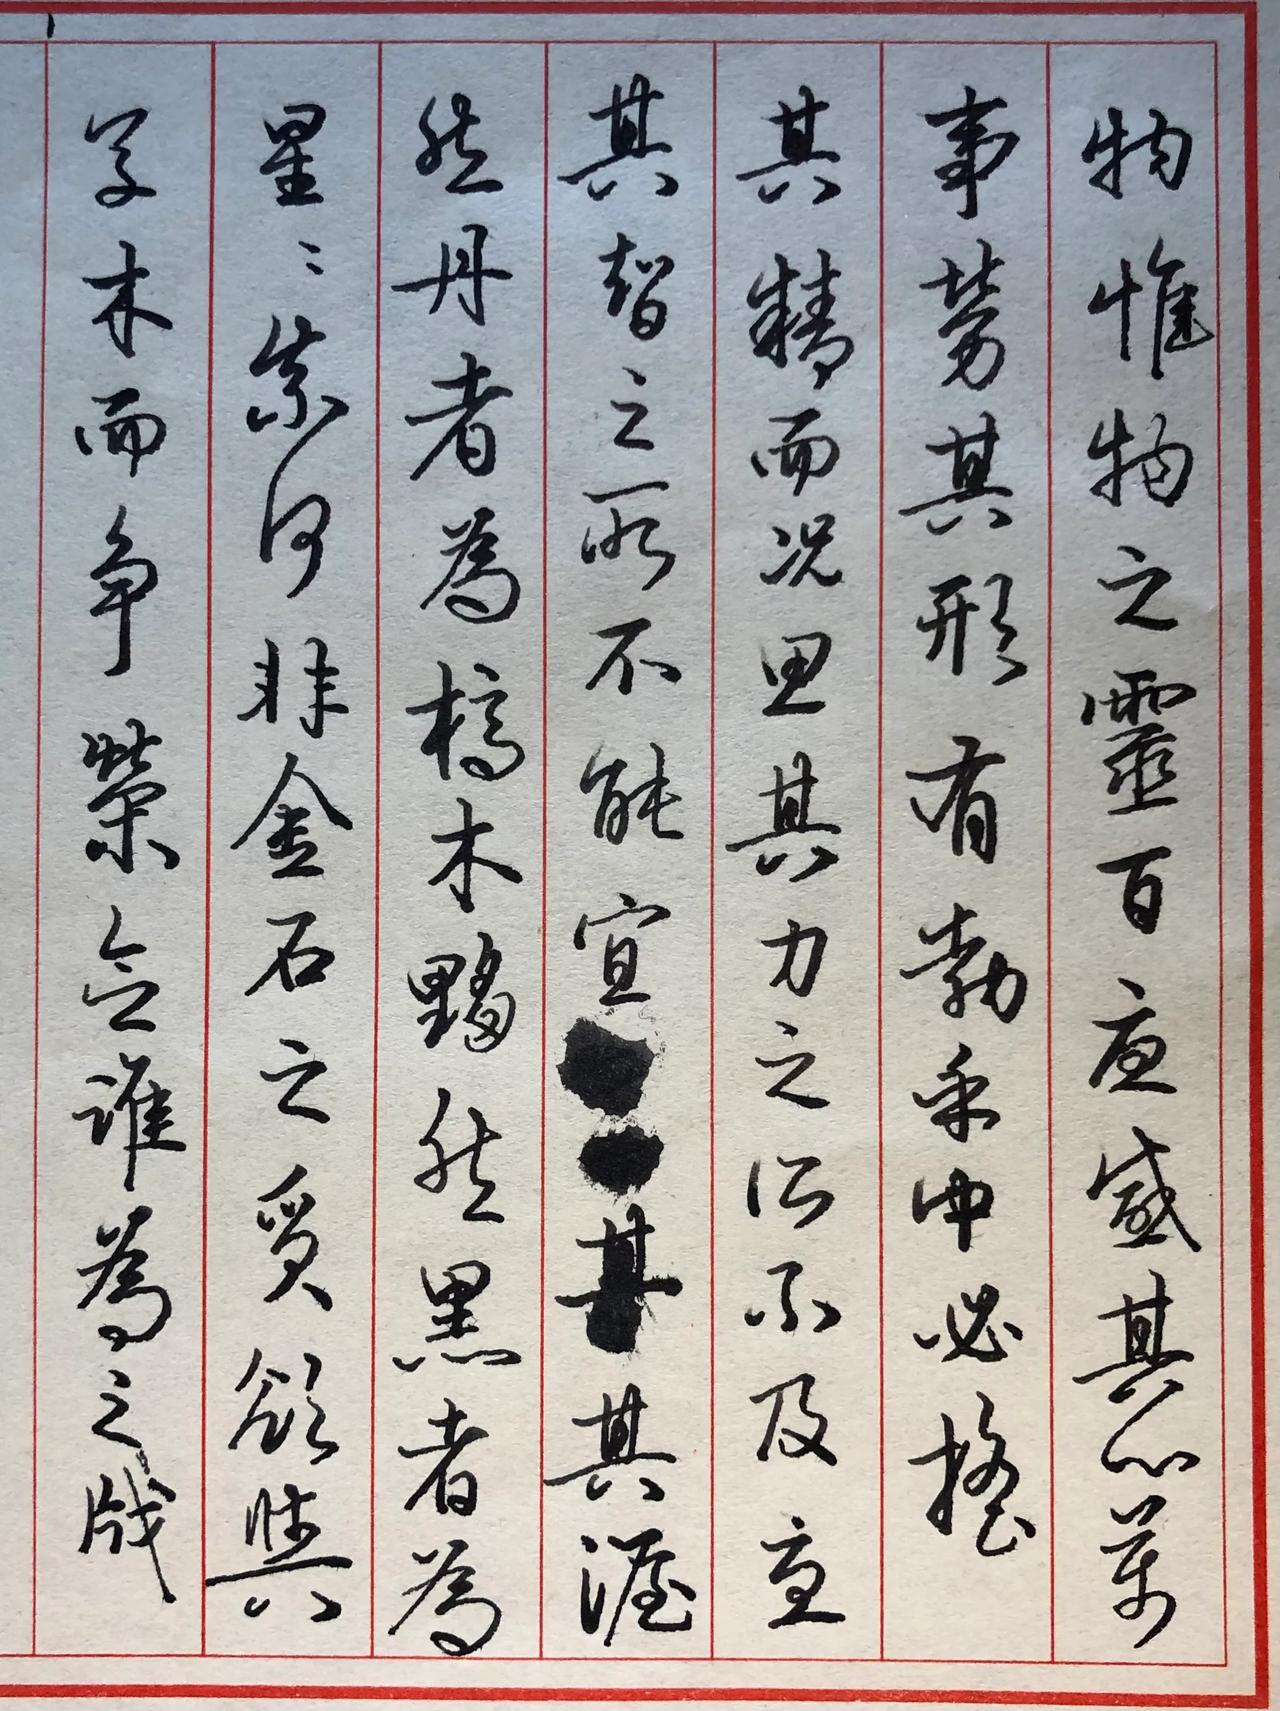 物惟物之靈百憂感其心萬
事勞其形有動乎中必搖
其精而况思其力之所不及憂
其智之所不能宜其其渥
然丹者為槁木黟然黑者為
星〻奈何非金石之質欲與
草木而争榮念誰為之戕